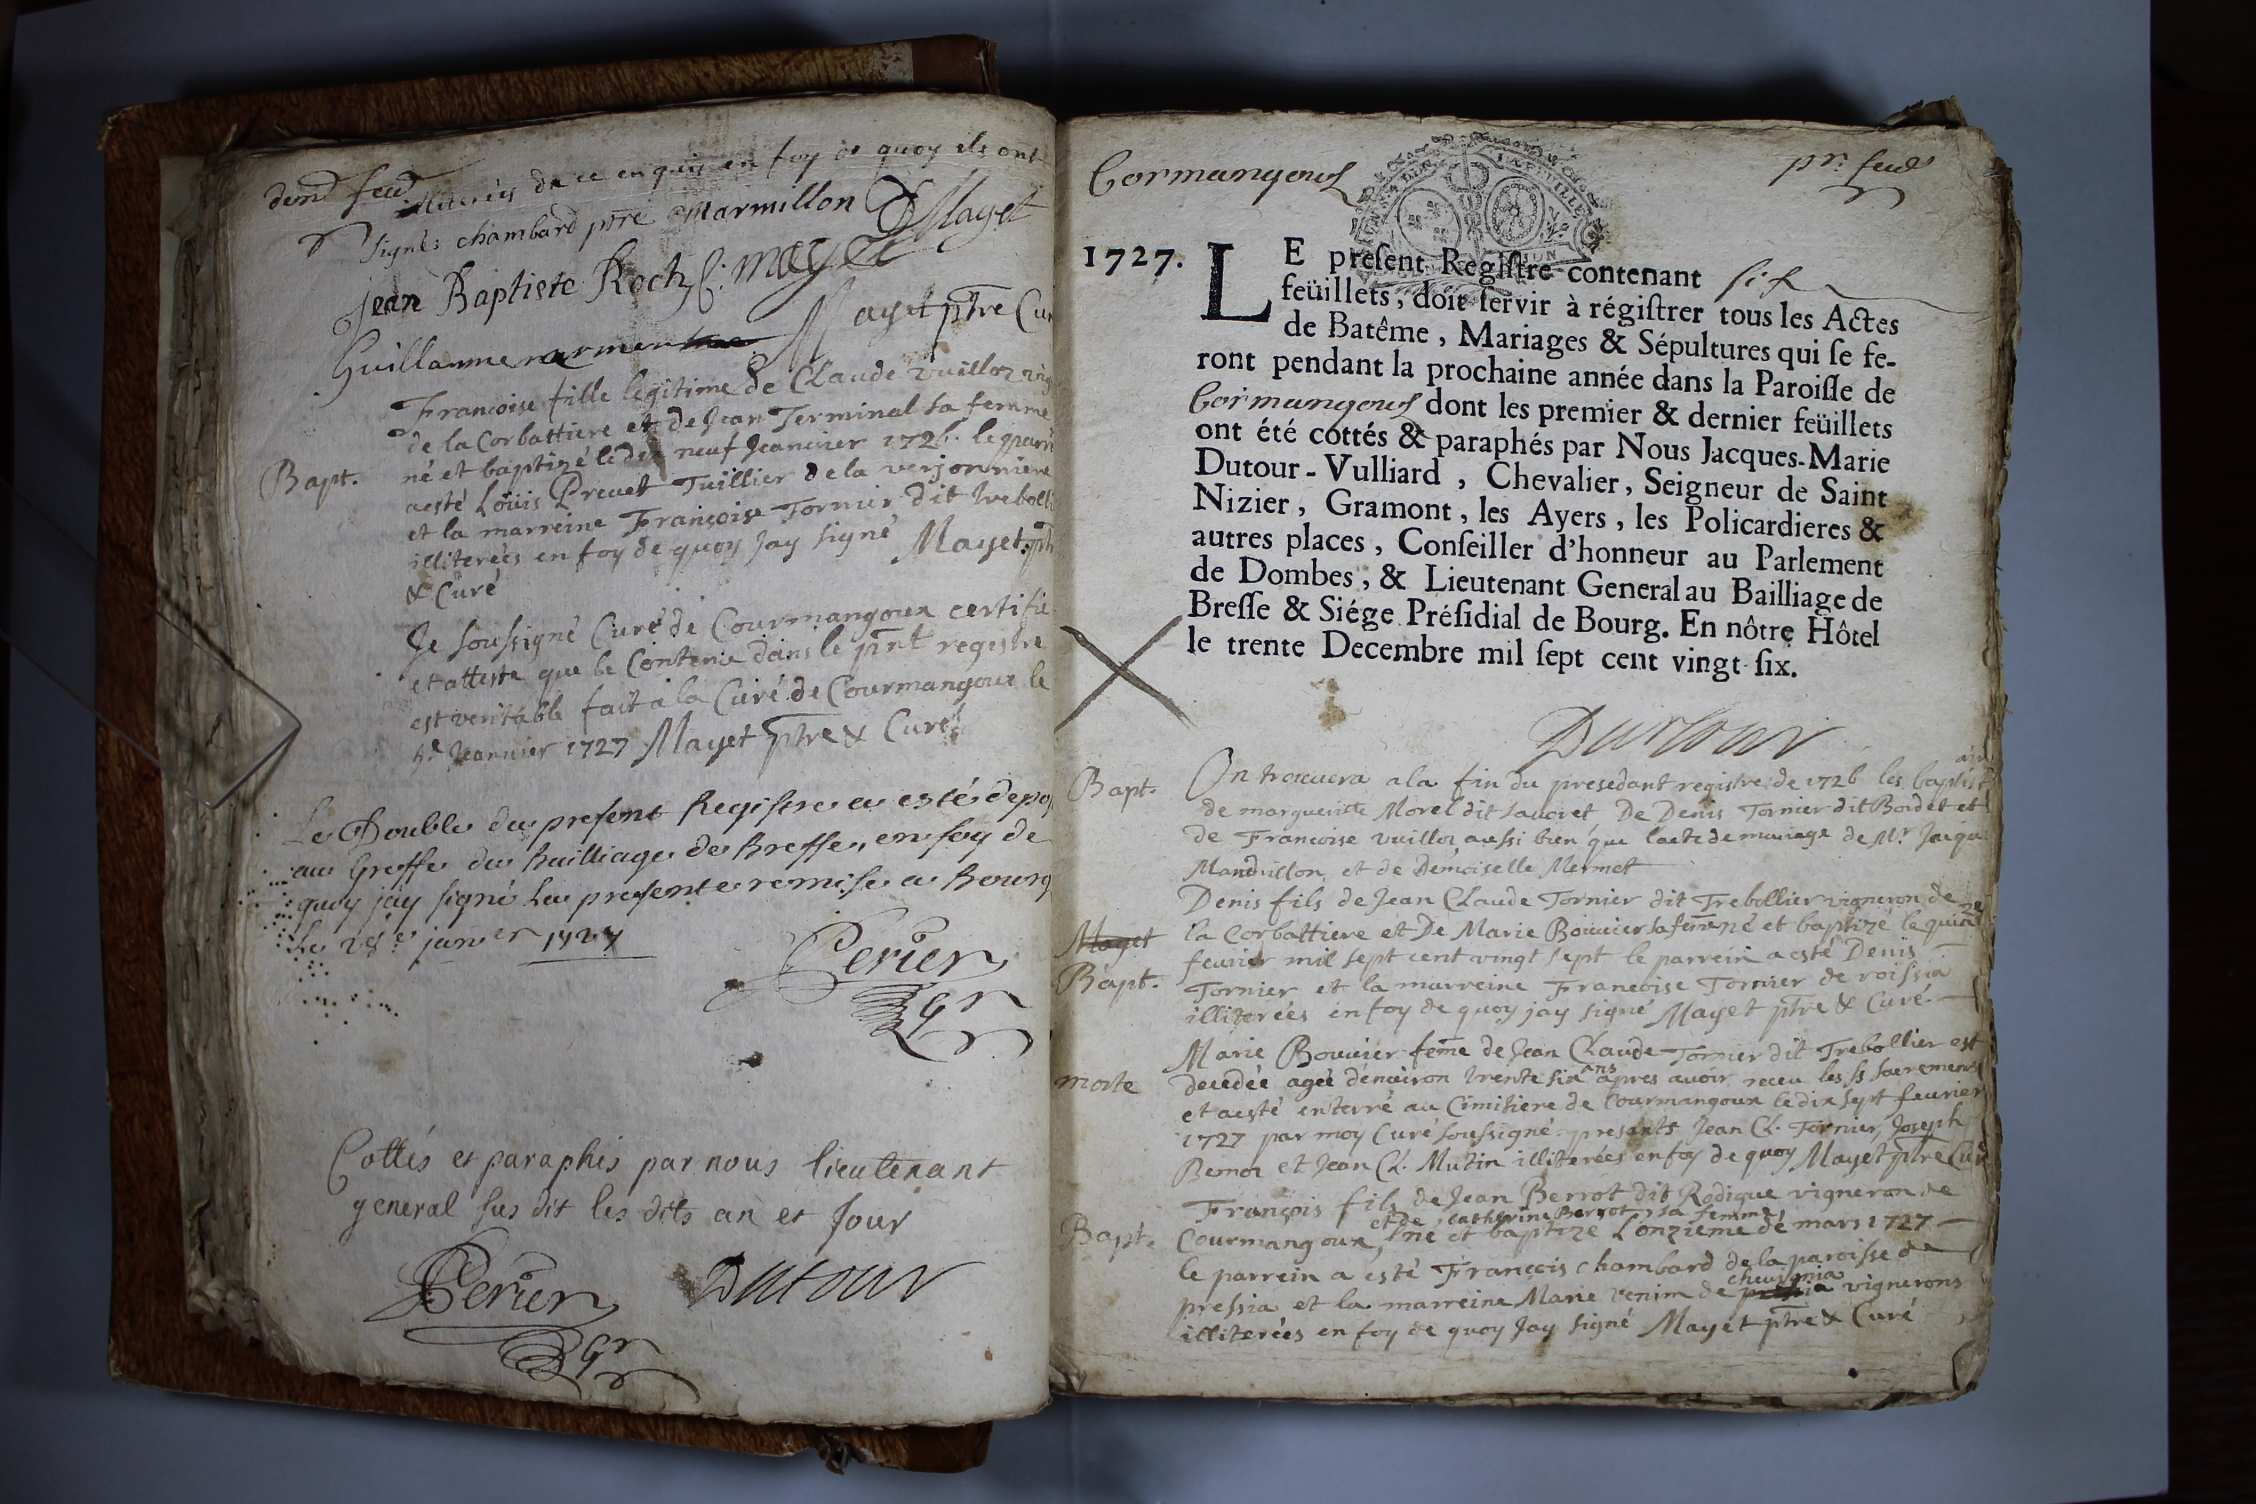 dern.r feuil.
illiterés de ce enquis en foy de quoy ils ont
signés chambard ptre Marmillon Mayet
Jean Baptiste Roch C. mayet
Guillaume Mayet ptre Cur
Francoise fille legitime de Claude vuilloz vig
de la Corbattiere et de Jean Terminal sa femme
Bapt. né et baptizé le dix neuf Jeanvier 1726. le parr
aesté Loüis Prevet Tuillier de la verjonniere
et la marreine Françoise Tornier dit trebolli
illiterées en foy de quoy Jay signé Mayet ptr
& Curé
Je soussigné Curé de Courmangoux certifie
et atteste que le Contenu dans le pnt regestre
est veritable fait a la Curé de Courmangoux le
Jeanvier 1727 Mayet ptre & Curé
Le Double du present Registre a esté depos
au Greffe du Bailliage de Bresse, en foy de
quoy jay signé La presente remise a Bourg
Le janer 1727
Perier
Gr
Cottés et paraphés par nous lieutenant
general sus dit les dits an et Jour
Perier Dutour
Gr
Cormangoux
pr. feuil
1727.
LE present Registre contenant six
feüillets, doit servir à régistrer tous les Actes
de Batême, Mariages & Sépultures qui se fe-
ront pendant la prochaine année dans la Paroisse de
Cormangoux dont les premier & dernier feüillets
ont été cottés & paraphés par Nous Jacques-Marie
Dutour-Vulliard, Chevalier, Seigneur de Saint
Nizier, Gramont, les Ayers, les Policardieres &
autres places, Conseiller d'honneur au Parlement
de Dombes, & Lieutenant General au Bailliage de
Bresse & Siége Présidial de Bourg. En nôtre Hôtel
le trente Decembre mil sept cent vingt-six.
Dutour
Bapt. On trouvera a la fin du presedant registre de 1726 les baptist
de margueritte Morel dit sauvret De Denis Tornier dit Bordet et
de Francoise vuilloz aussi bien que lacte de mariage de Mr. Jacqu
Mandrillon et de Demoiselle Mermet
Denis fils de Jean Claude Tornier dit Trebollier vigneron de
Mayet la Corbattiere et De Marie Bouvier sa feme né et baptizé le quinze
fevrier mil sept cent vingt sept le parrein a esté Denis
Bapt. Tornier et la marreine Francoise Tornier de roissia
illiterées en foy de quoy jay signé Mayet ptre & Curé
Marie Bouvier feme de Jean Claude Tornier dit Trebollier est
morte decedée agée d'environ trente six ans apres avoir receu les ss sacrements
et aesté enterré au Cimitiere de Courmangoux le dix sept feuvrier
1727 par moy Curé soussigné. presants Jean Cl. Tornier, Joseph
Bernoz et Jean Cl. Mutin illiterées en foy de quoy Mayet ptre Curé
François fils de Jean Berrot dit Rodigue vigneron de
et de Catherine Berrot sa femme
Bapt. Courmangoux, né et baptize Lonzieme de mars 1727
le parrein a esté François chambard de la paroisse de
chevignia
pressia et la marreine Marie venim de pressia vignerons
illiterées en foy de quoy Jay signé Mayet ptre & Curé